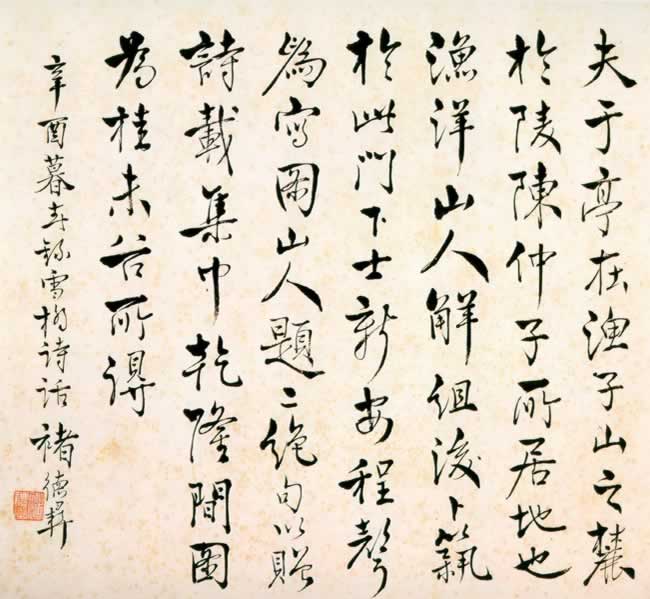 夫于亭在漁子山之麓
於陵陳仲子所居地也
漁洋山人解組後卜築
於此門下士新安程聲
為寫圖山人題二絕句以贈
詩載集中乾隆間圖
為桂未谷所得
辛酉暮春錄雪橋詩話 褚德彝